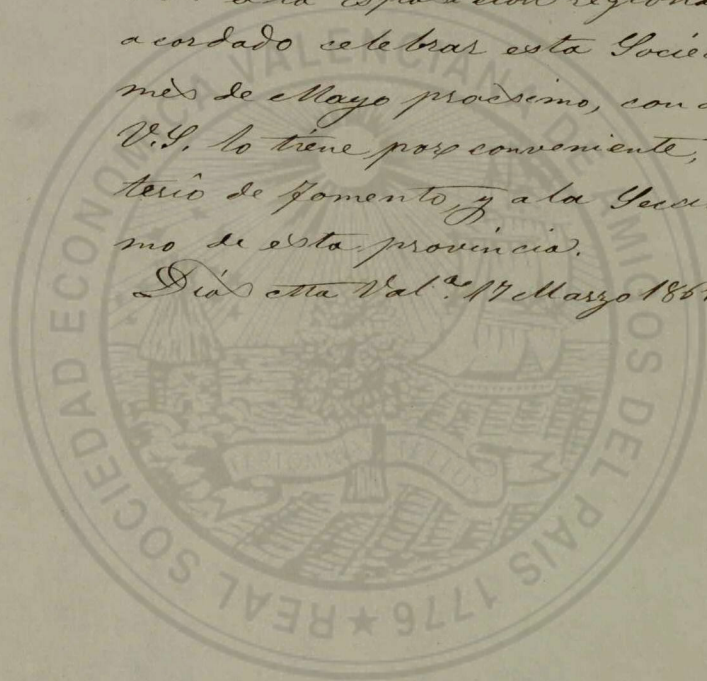 a la esposicion regiona
acordado celebrar esta Socie
mes de Mayo procsimo, con
V.S. lo tiene por conveniente,
terio de Fomento, y a la Secc
mo de esta provincia.
Dios etta Val.ª 17 Marzo 186
REAL SOCIEDAD ECONOMICA VALENCIANA DE AMICOS DEL PAIS 1776